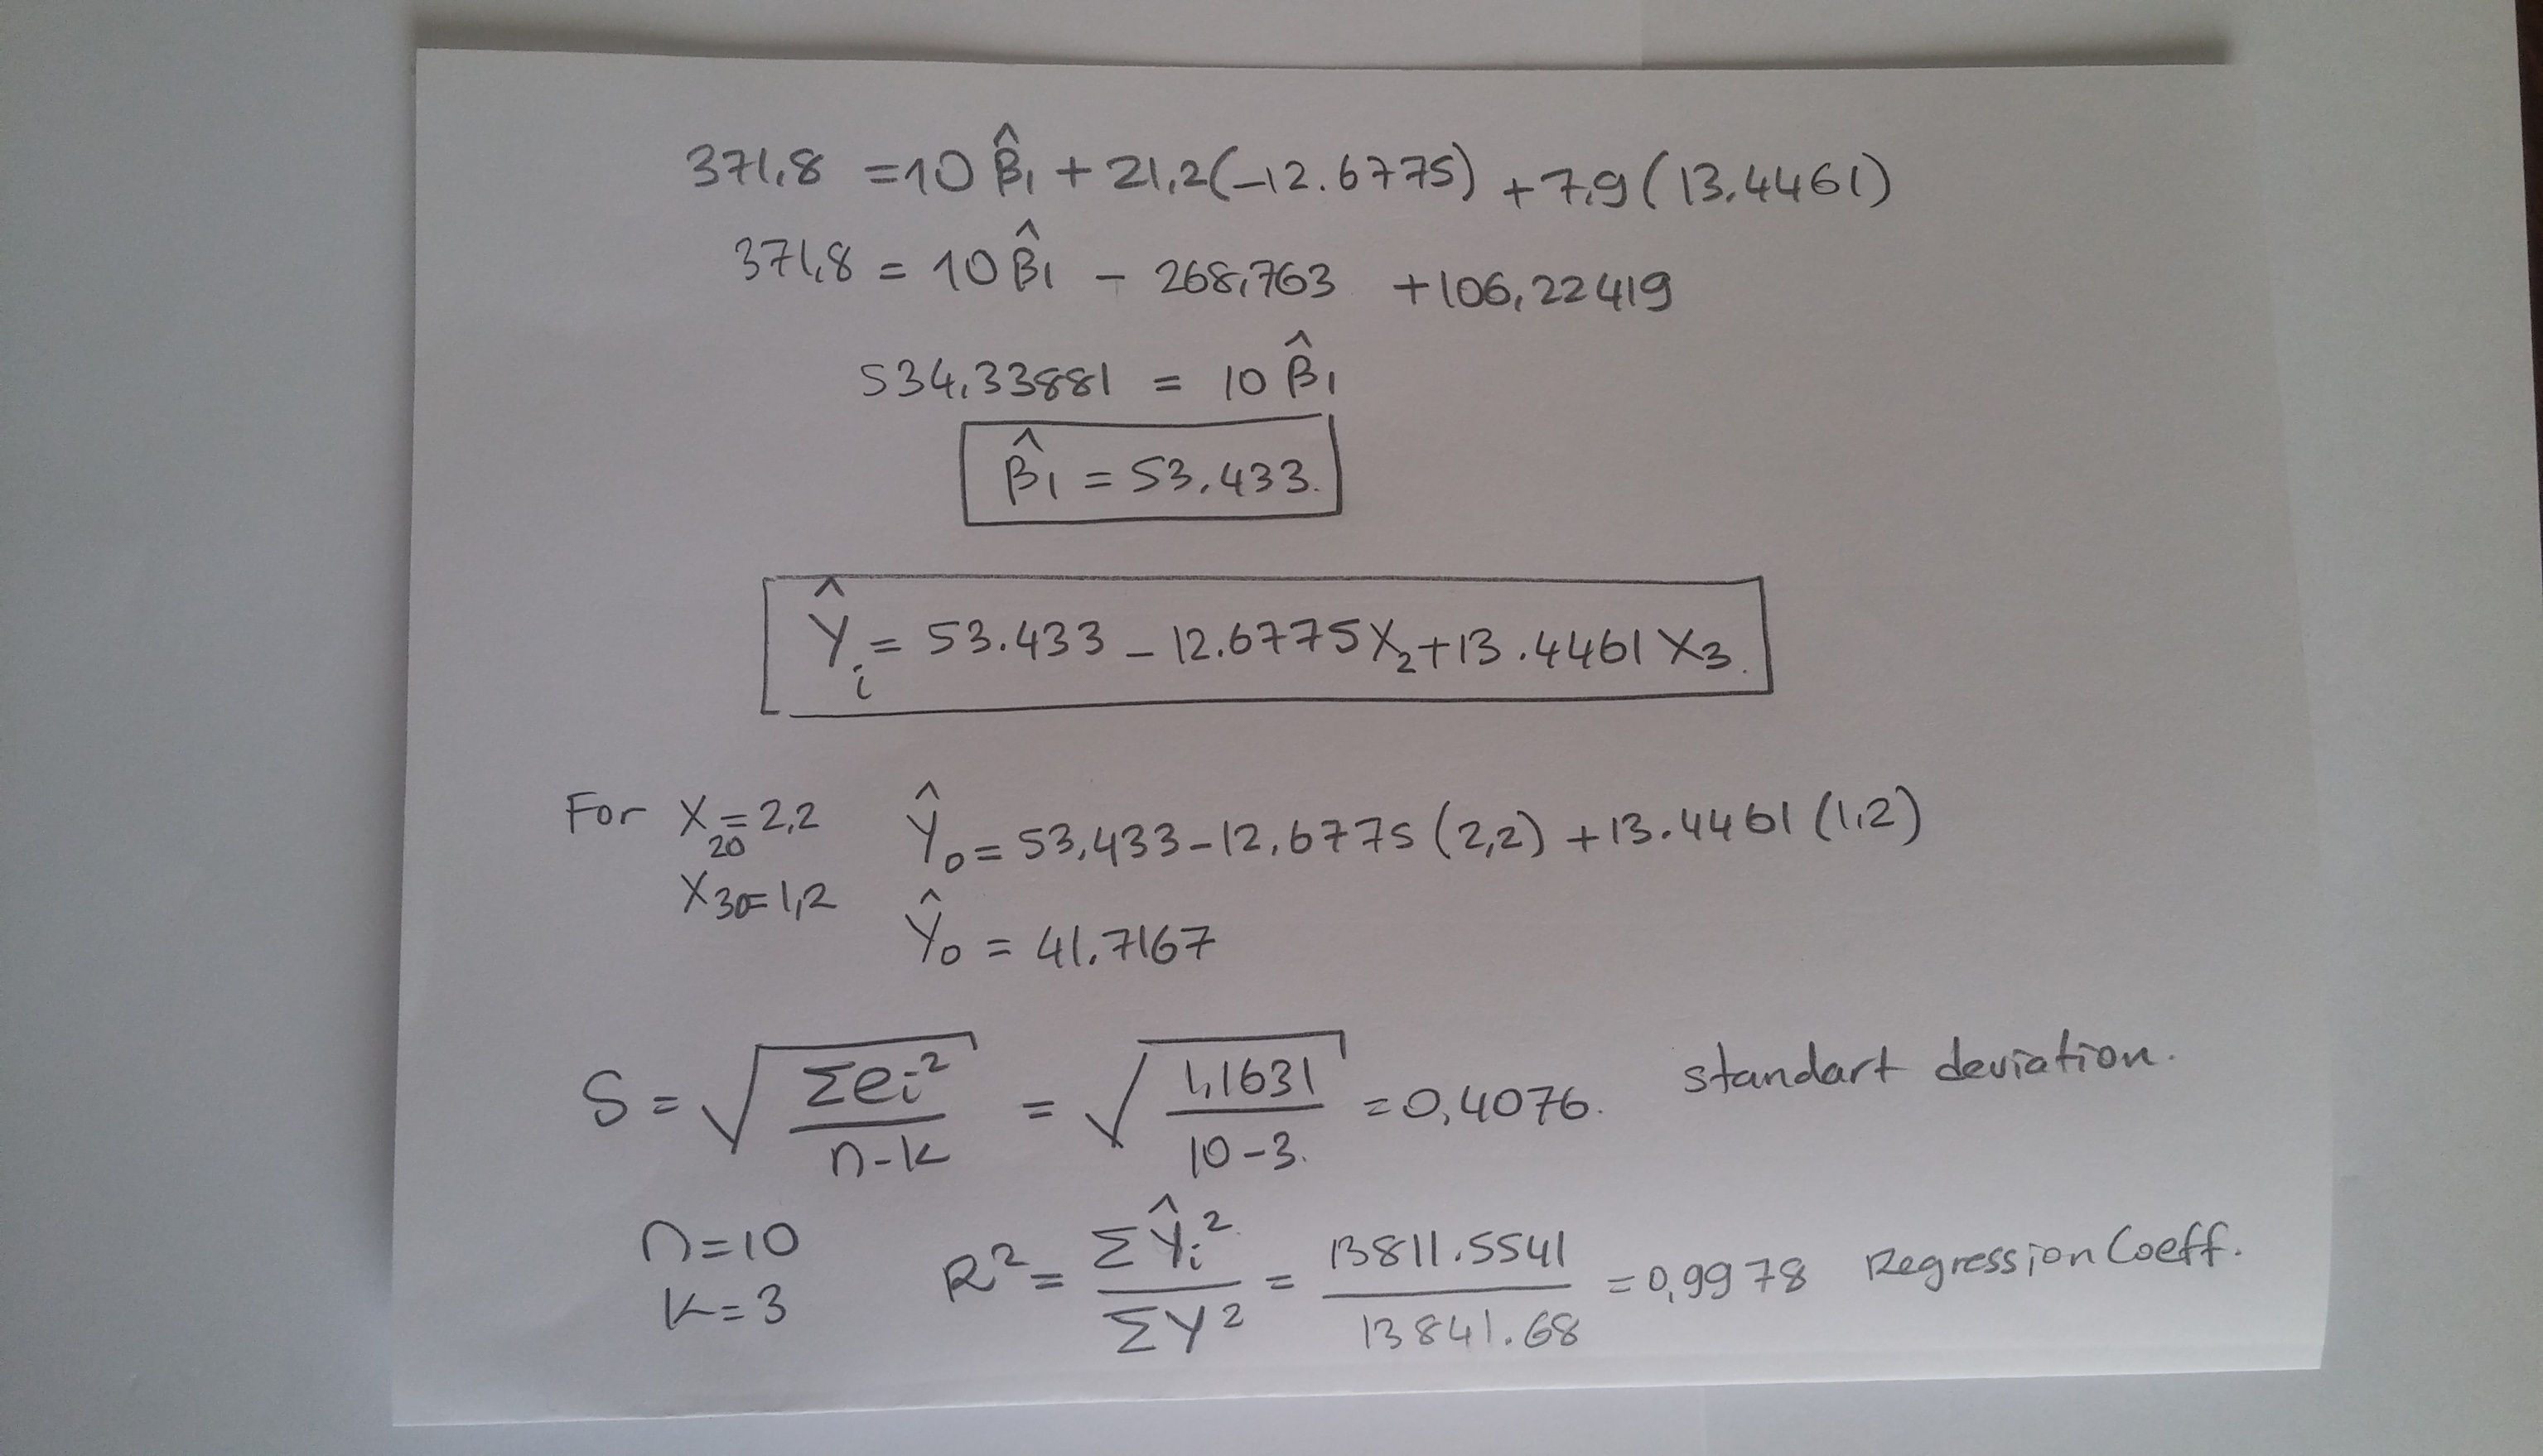 371,8 = 10 β̂₁ + 21,2(-12.6775) + 7,9(13,4461)
371,8 = 10 β̂₁ - 268,763 + 106,22419
534,33881 = 10 β̂₁
β̂₁ = 53,433.
Ŷᵢ = 53.433 - 12.6775X₂ + 13.4461 X₃.
For X₂₀ = 2,2 Ŷ₀ = 53,433 - 12,6775 (2,2) + 13.4461 (1,2)
X₃₀ = 1,2
Ŷ₀ = 41.7167
S = √(Σeᵢ² / n-k) = √(1,1631 / 10-3.) = 0,4076. standart deviation.
n = 10
k = 3
R² = ΣŶᵢ² / ΣY² = 13811.5541 / 13841.68 = 0,9978 Regression Coeff.